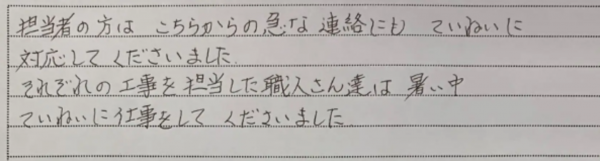 担当者の方は こちらからの急な連絡にも ていねいに
対応してくださいました
それぞれの工事を担当した職人さん達は 暑い中
ていねいに仕事をして くださいました